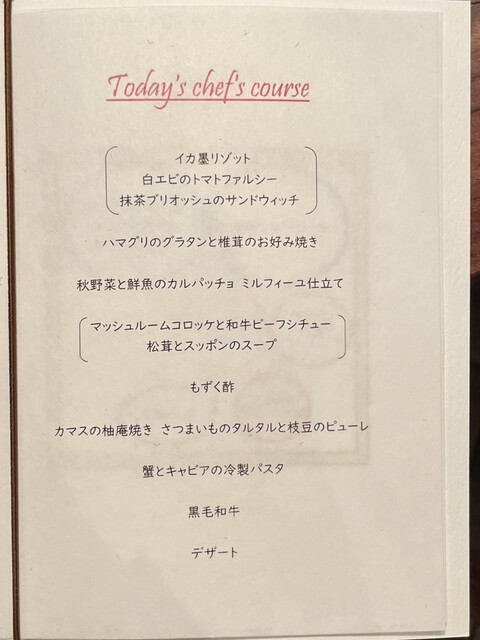 Today's chef's course
イカ墨リゾット
白エビのトマトファルシー
抹茶ブリオッシュのサンドウィッチ
ハマグリのグラタンと椎茸のお好み焼き
秋野菜と鮮魚のカルパッチョ ミルフィーユ仕立て
マッシュルームコロッケと和牛ビーフシチュー
松茸とスッポンのスープ
もずく酢
カマスの柚庵焼き さつまいものタルタルと枝豆のピューレ
蟹とキャビアの冷製パスタ
黒毛和牛
デザート